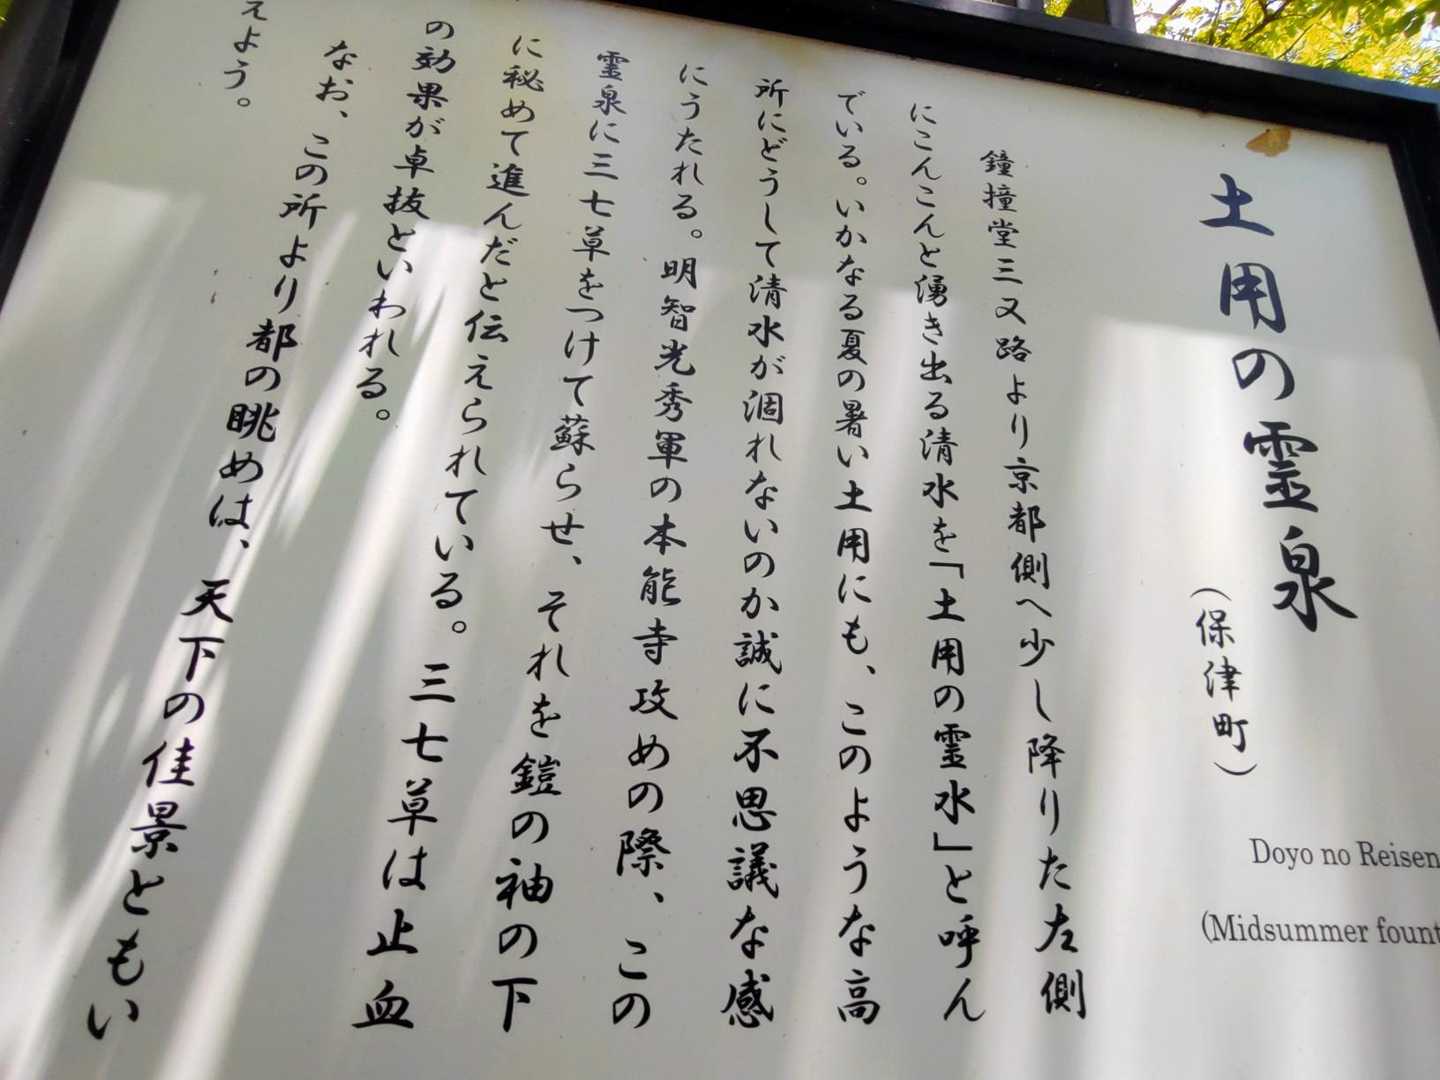 土用の霊泉
(保津町)
Doyo no Reisen
(Midsummer fount
鐘撞堂三又路より京都側へ少し降りた左側
にこんこんと湧き出る清水を「土用の霊水」と呼ん
でいる。いかなる夏の暑い土用にも、このような高
所にどうして清水が涸れないのか誠に不思議な感
にうたれる。明智光秀軍の本能寺攻めの際、この
霊泉に三七草をつけて蘇らせ、それを鎧の袖の下
に秘めて進んだと伝えられている。三七草は止血
の効果が卓抜といわれる。
なお、この所より都の眺めは、天下の佳景ともい
えよう。